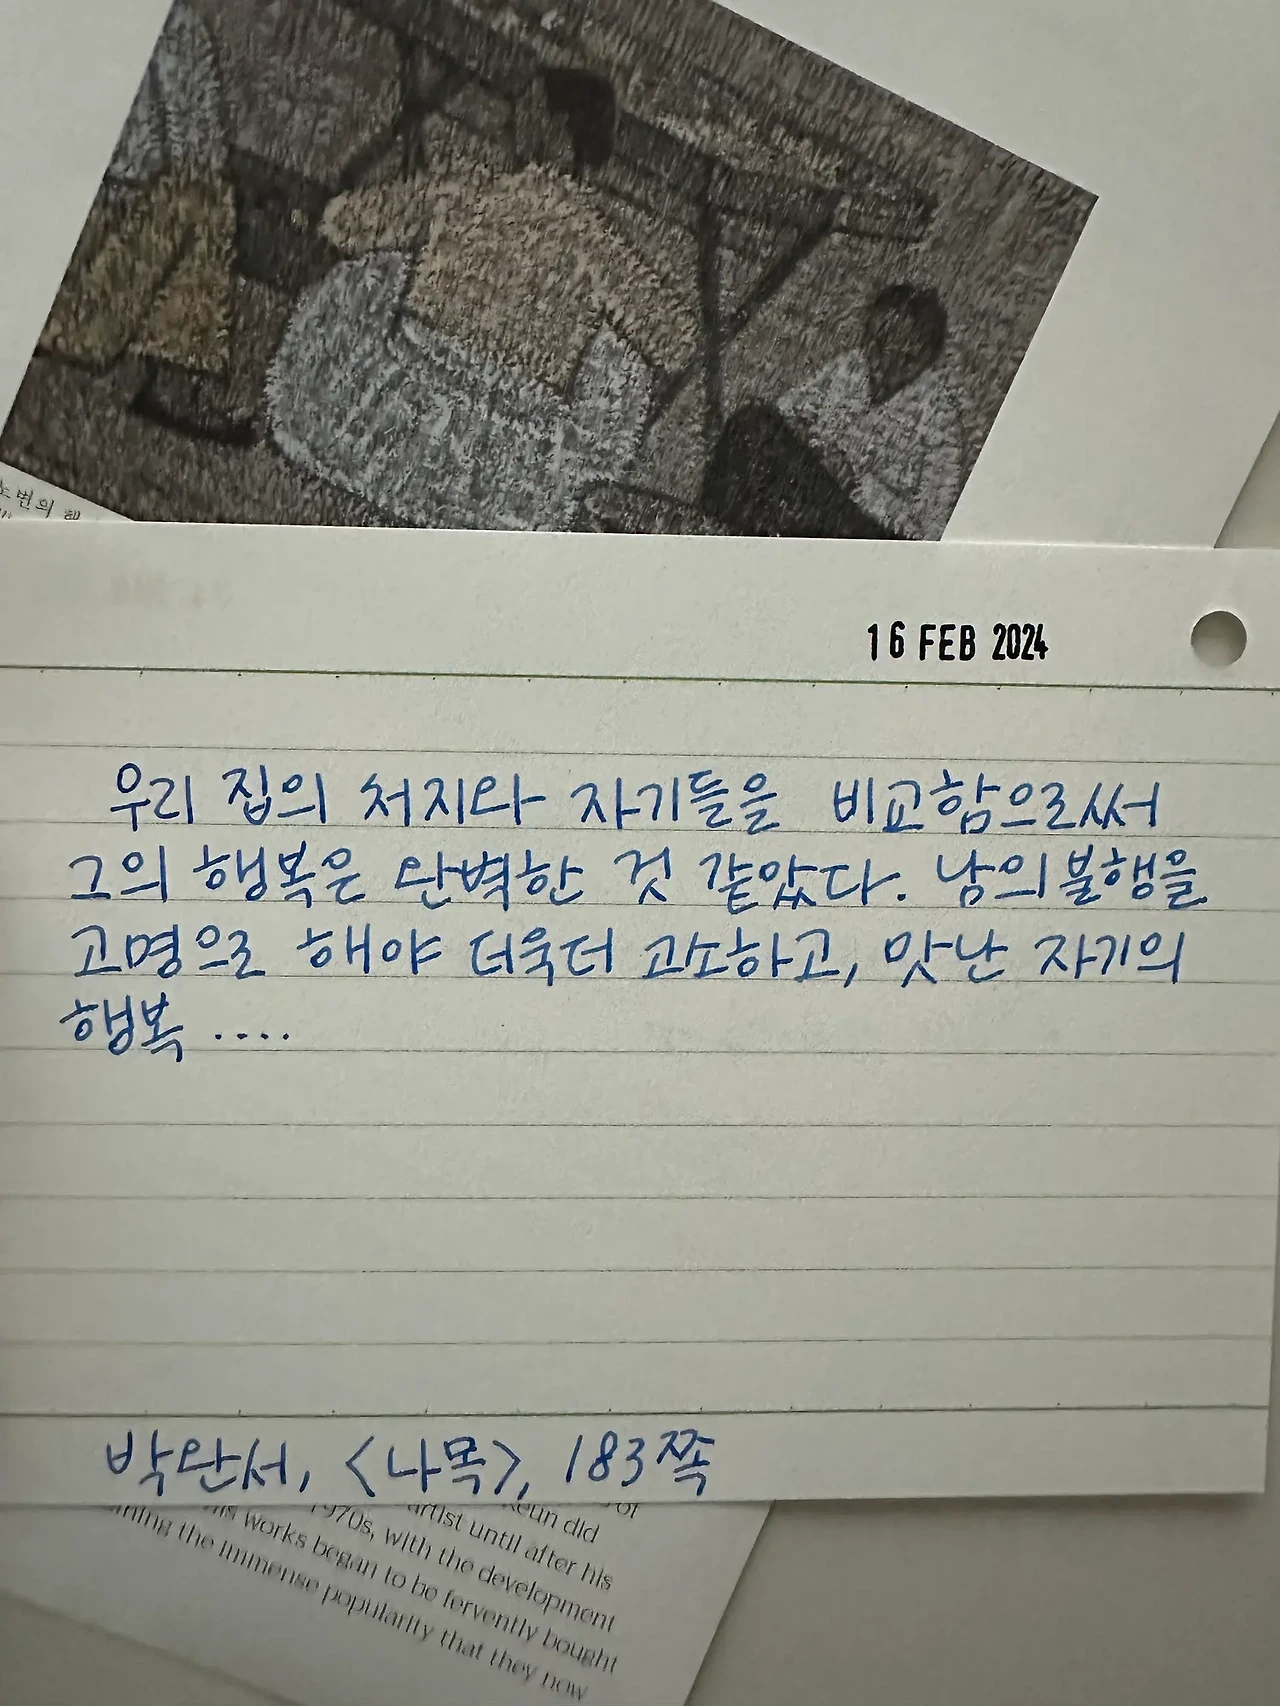 노변의
16 FEB 2024
우리 집의 처지와 자기들을 비교함으로써
그의 행복은 완벽한 것 같았다. 남의 불행을
고명으로 해야 더욱더 고소하고, 맛난 자기의
행복 ....
박완서, <나목>, 183쪽
of
Keun did
artist until after his
1970s, with the development
works began to be fervently bought
the immense popularity that they now